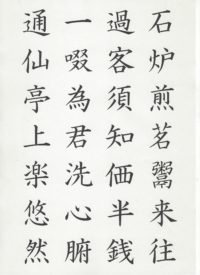 石炉煎茗鬻来往
過客須知価半銭
一啜為君洗心腑
通仙亭上楽悠然